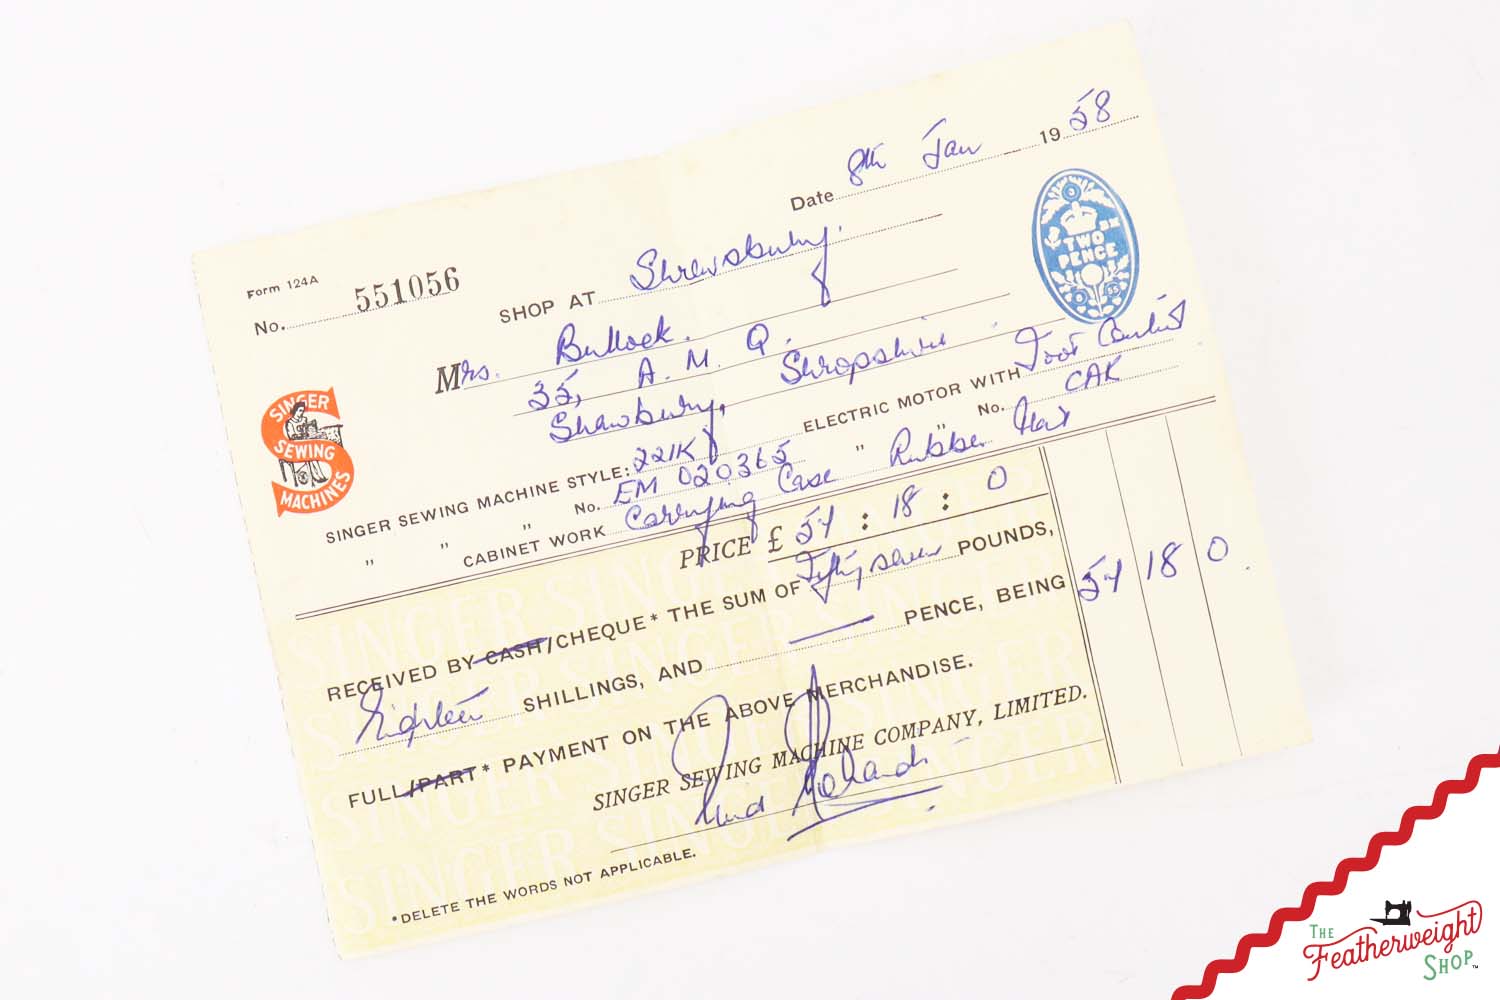 Date 8th Jan 1958
Form 124A
No. 551056
SHOP AT Shrewsbury.
TWO PENCE
Mrs. Bullock.
35, A. M. Q.
Shawbury, Shropshire
SINGER SEWING MACHINES
SINGER SEWING MACHINE STYLE: 221K ELECTRIC MOTOR WITH Foot Control
" " No. EM 020365 " " No. CAK
" CABINET WORK Carrying Case Rubber Mat
PRICE £ 57 : 18 : 0
RECEIVED BY CASH/CHEQUE* THE SUM OF Fifty seven POUNDS,
Eighteen SHILLINGS, AND — PENCE, BEING 57 18 0
FULL/PART* PAYMENT ON THE ABOVE MERCHANDISE.
SINGER SEWING MACHINE COMPANY, LIMITED.
*DELETE THE WORDS NOT APPLICABLE.
THE
Featherweight
SHOP™